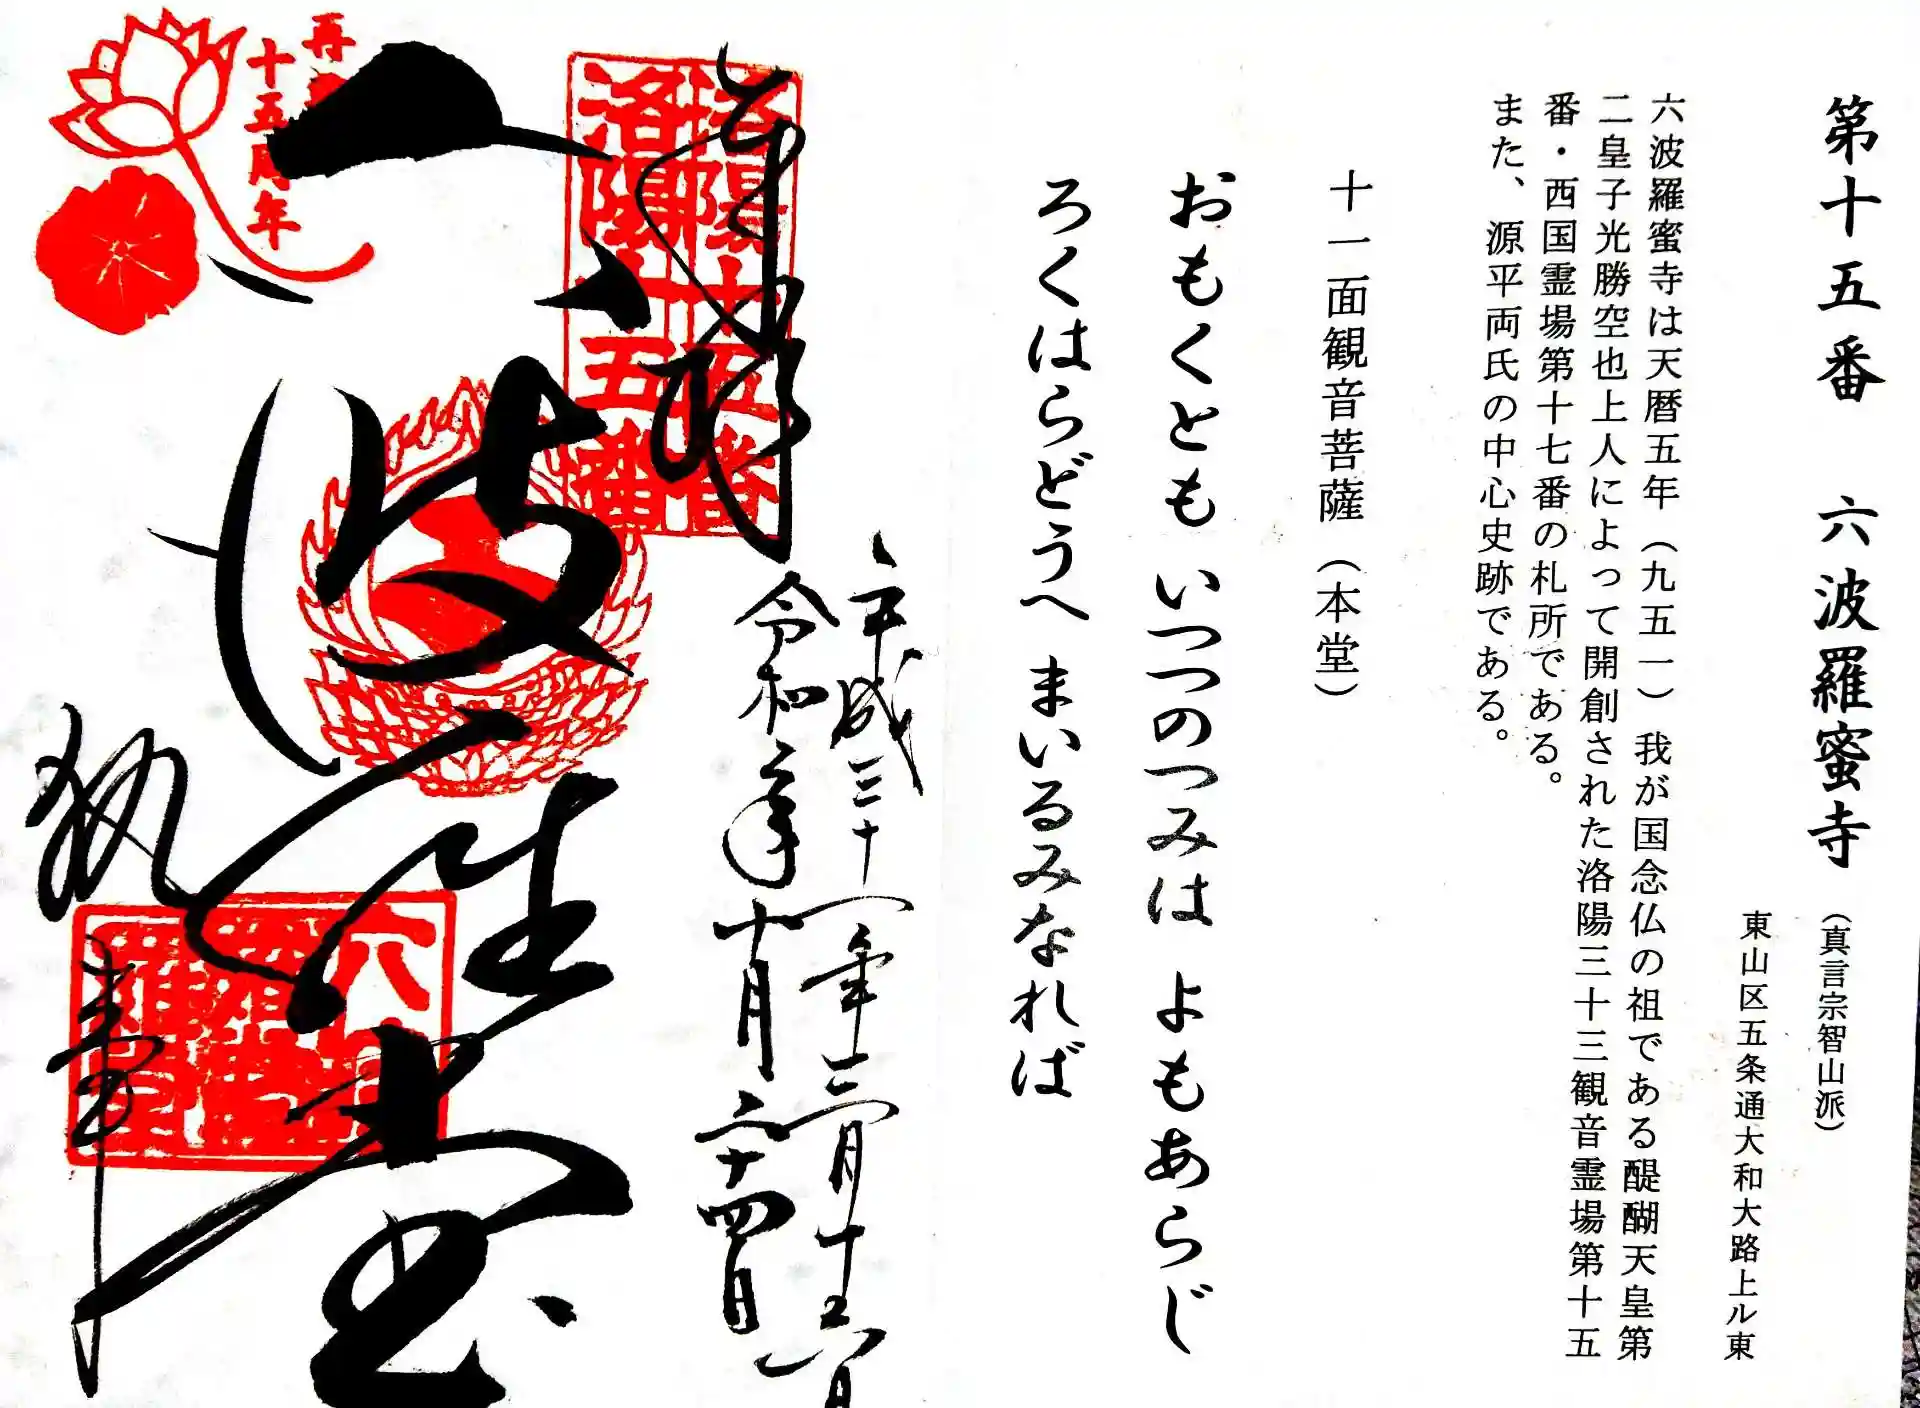 第十五番 六波羅蜜寺（真言宗智山派）
東山区五条通大和大路上ル東
六波羅蜜寺は天暦五年（九五一）我が国念仏の祖である醍醐天皇第
二皇子光勝空也上人によって開創された洛陽三十三観音霊場第十五
番・西国霊場第十七番の札所である。
また、源平両氏の中心史跡である。
十一面観音菩薩（本堂）
おもくとも いつつのつみは よもあらじ
ろくはらどうへ まいるみなれば
平成三十一年三月十六日
令和二年十月二十四日
奉拝
洛陽十五番
洛陽十五番
六波羅堂
十五周年